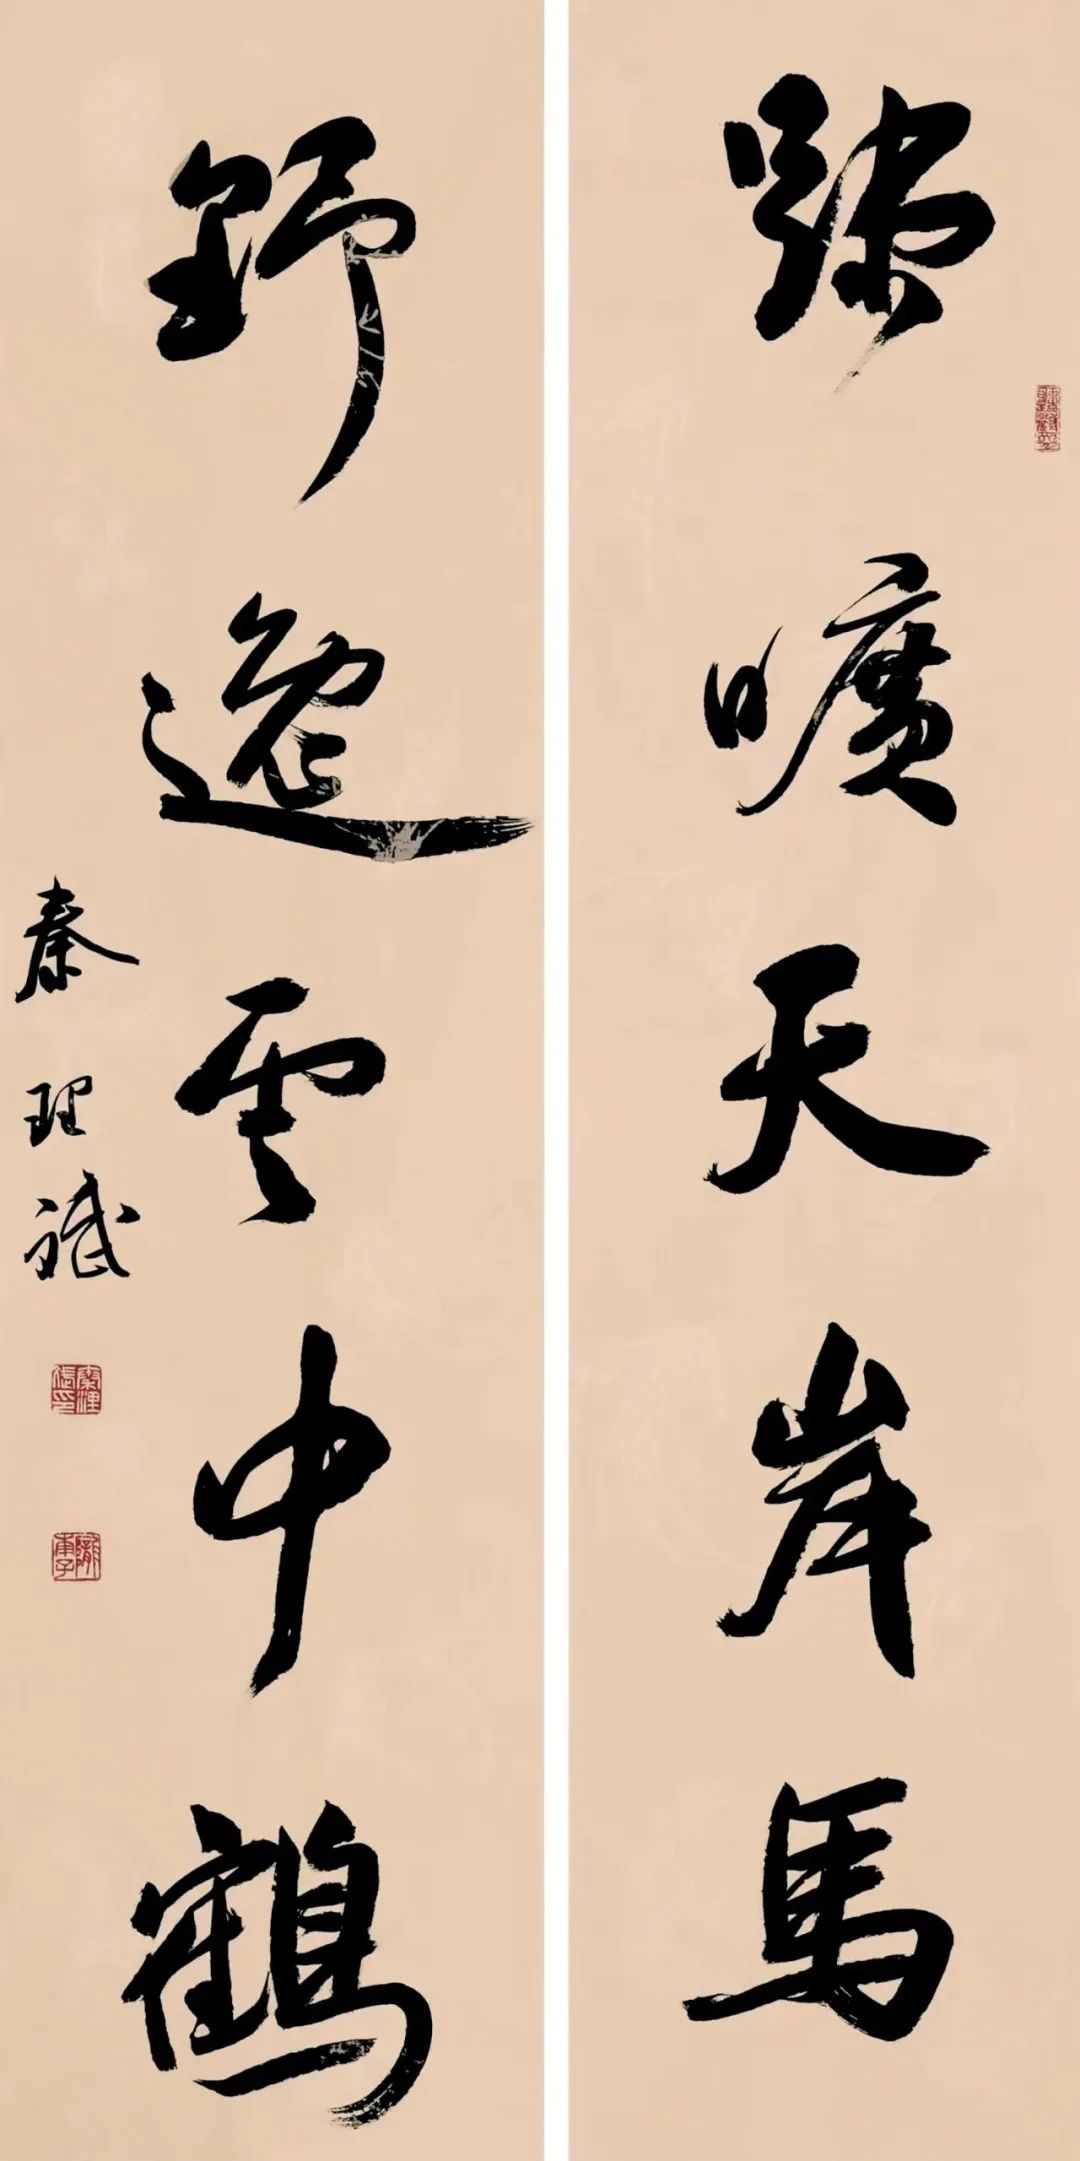 踈曠天岸馬
野逸雲中鶴
秦理斌